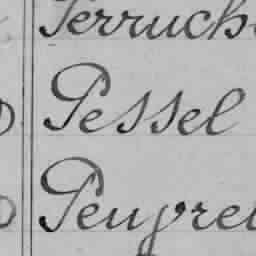 Perruch
Pessel
Peuvrel